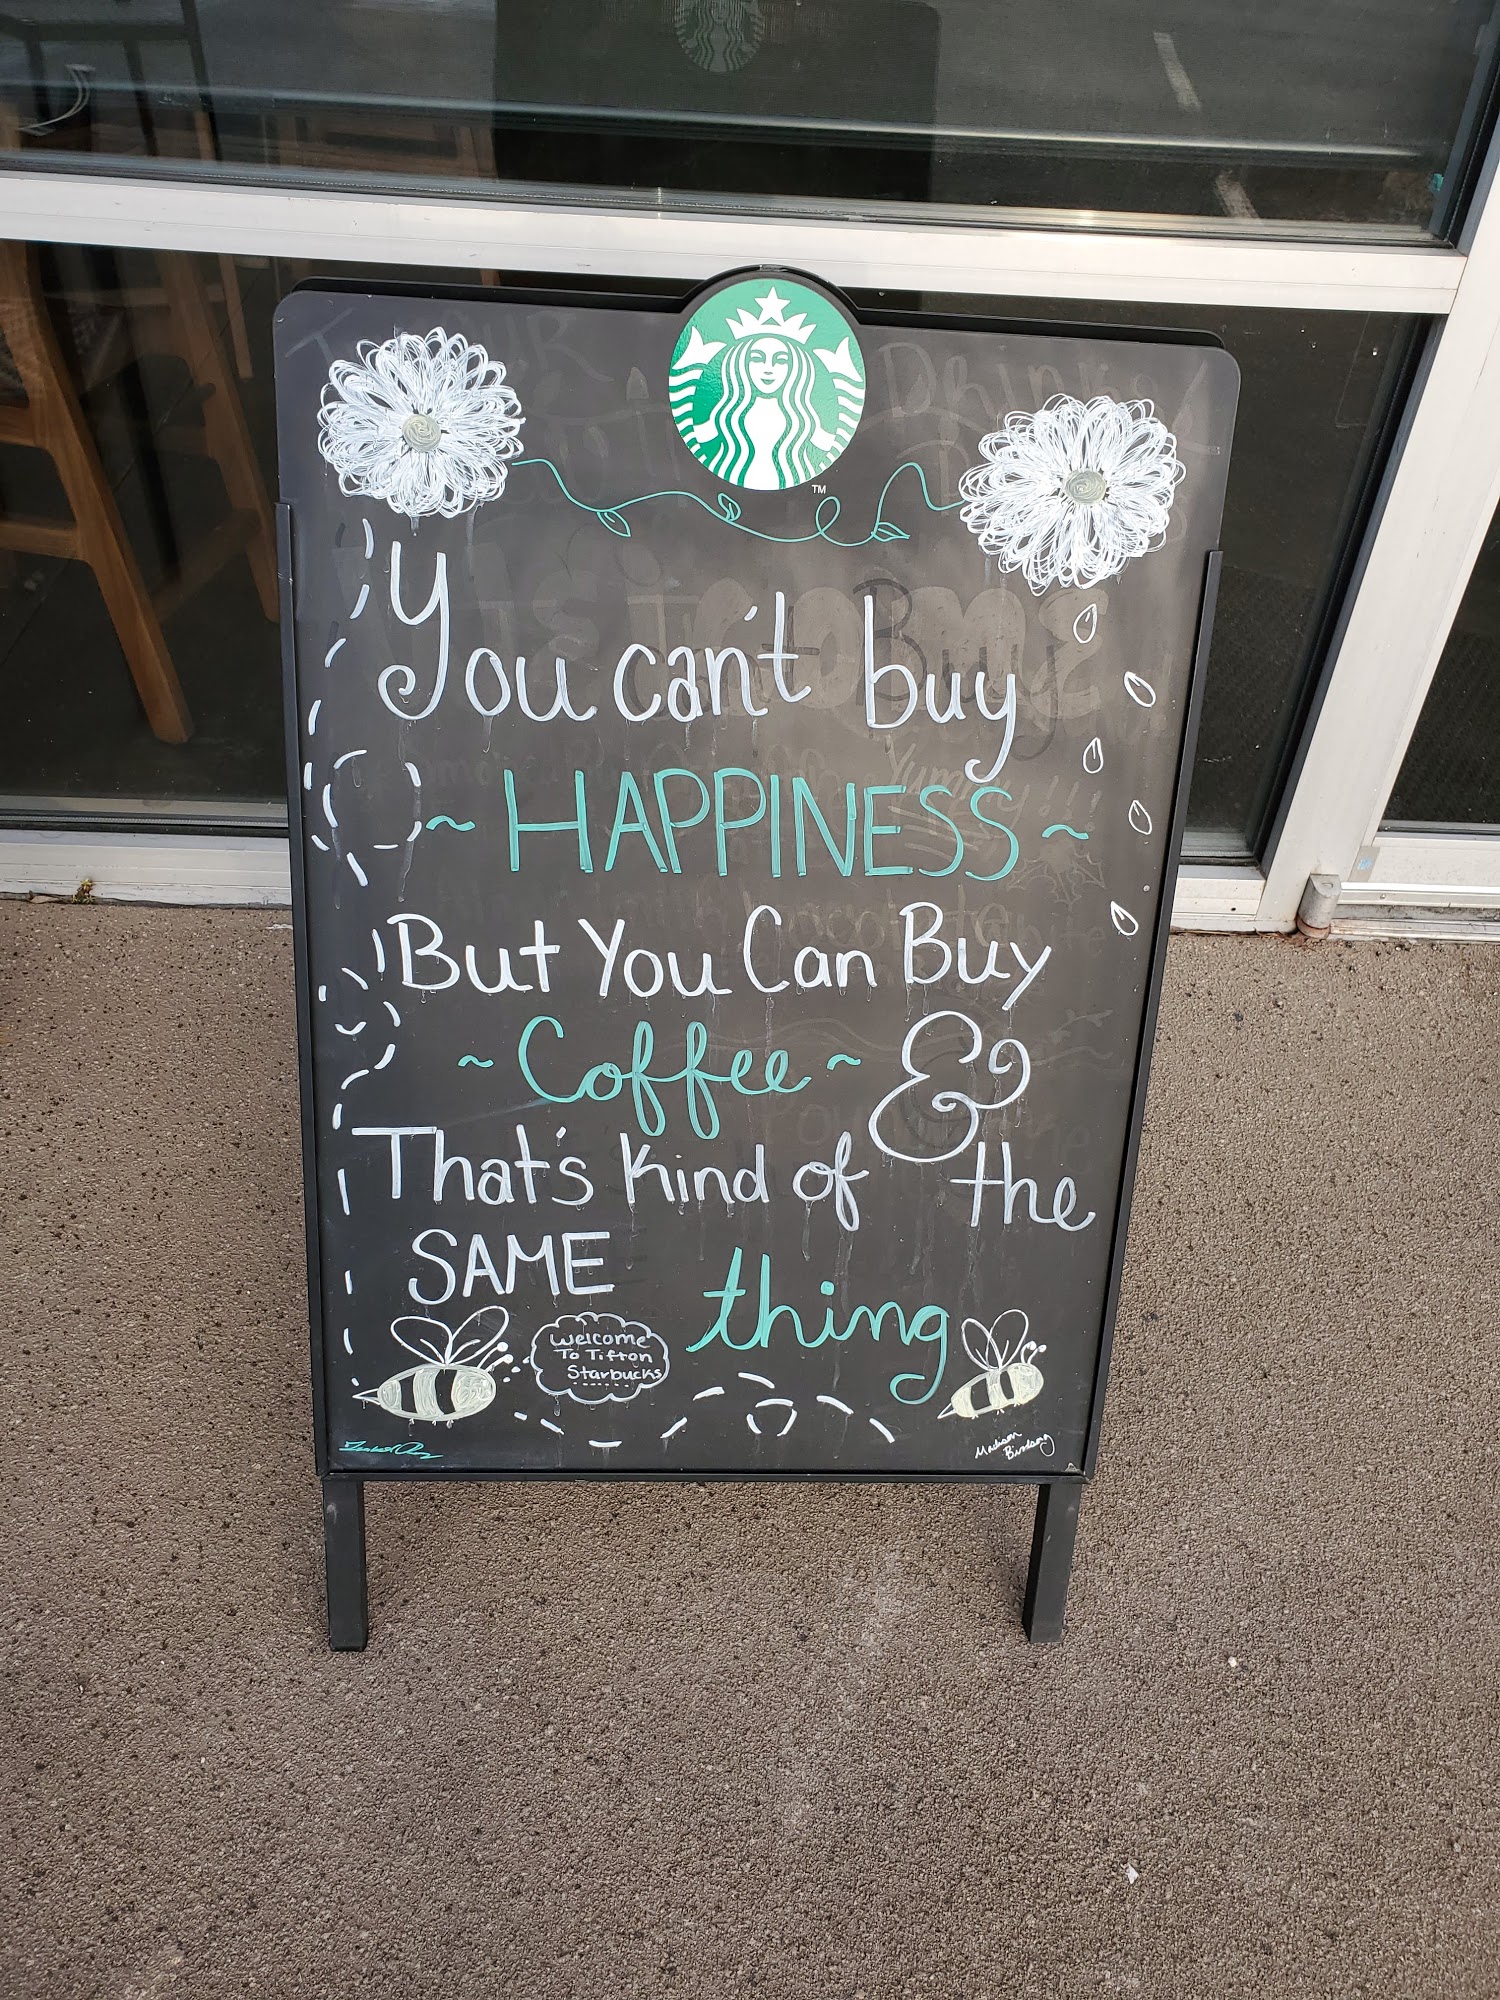 TM
You can't buy
~ HAPPINESS ~
But You Can Buy
~ Coffee ~ &
That's Kind of the
SAME thing
Welcome
To Tifton
Starbucks
Madison